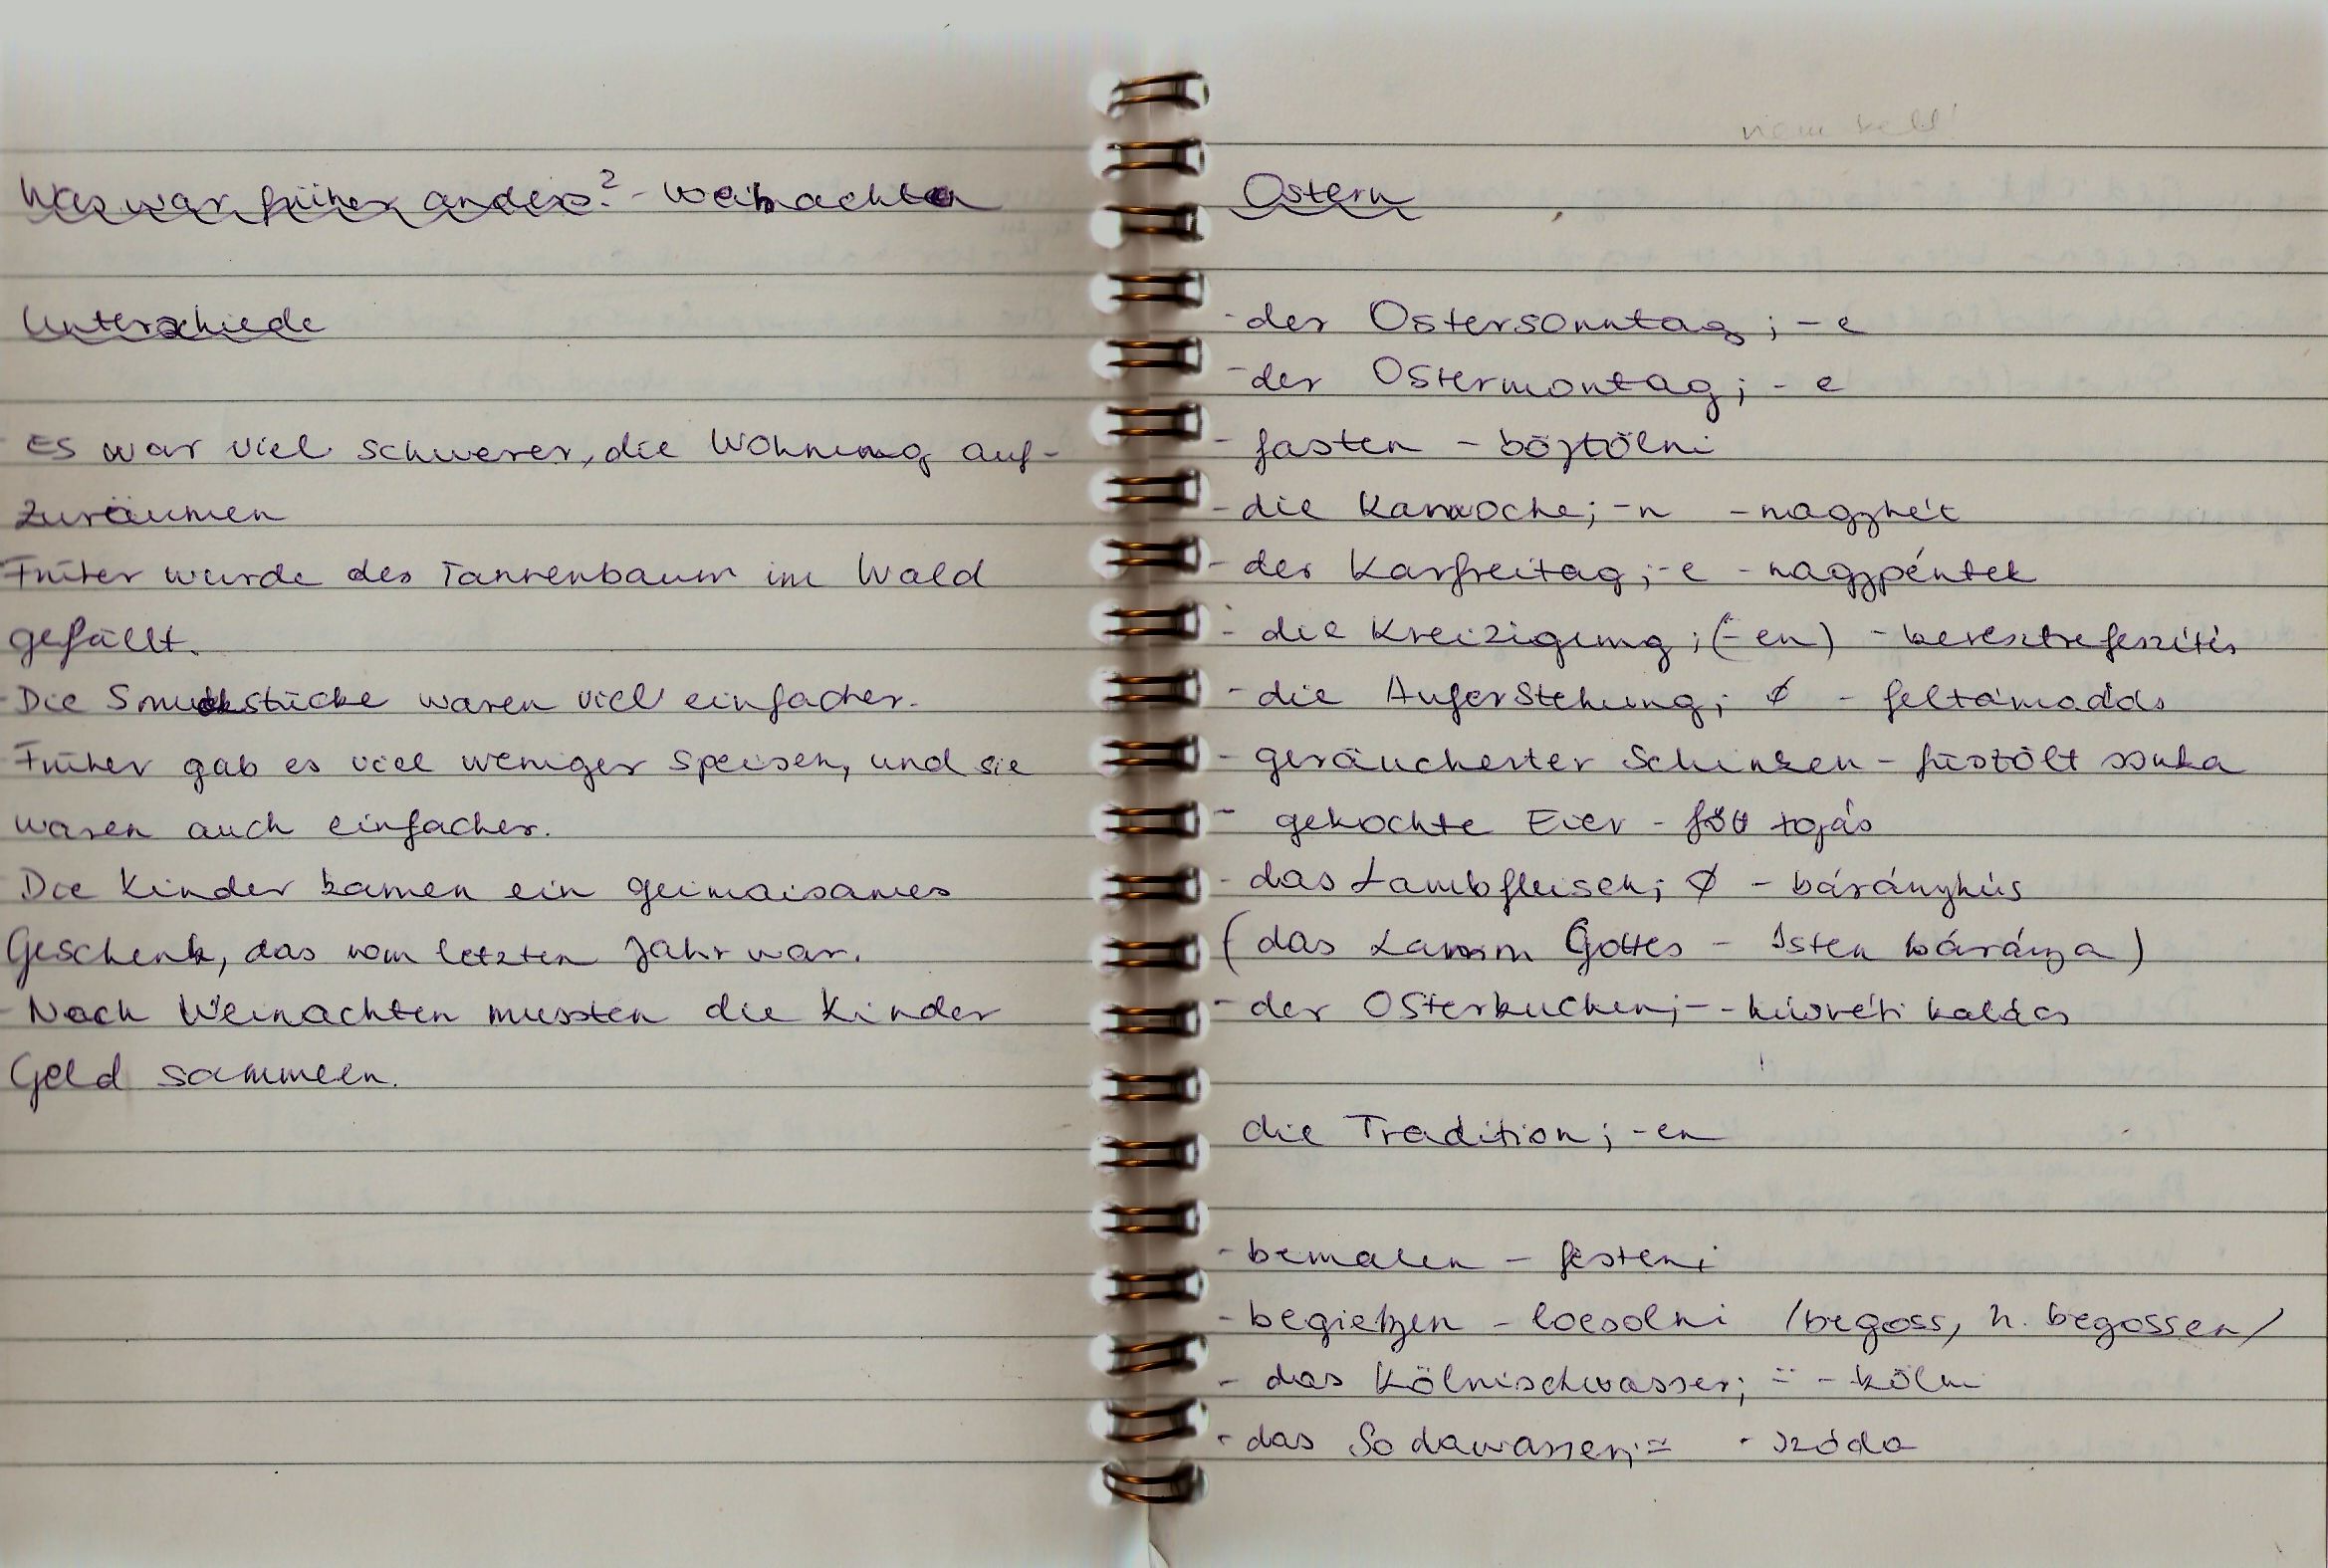 Was war früher anders? - Weihnachten
Unterschiede
- Es war viel schwerer, die Wohnung auf-
zuräumen
- Früher wurde der Tannenbaum im Wald
gefällt.
- Die Smuckstücke waren viel einfacher.
- Früher gab es viel weniger Speisen, und sie
waren auch einfacher.
- Die Kinder kamen ein geimaisames
Geschenk, das vom letzten Jahr war.
- Nach Weinachten mussten die Kinder
Geld sammeln.
nem kell!
Ostern
- der Ostersonntag; -e
- der Ostermontag; -e
- fasten - böjtölni
- die Karwoche; -n - nagyhét
- der Karfreitag; -e - nagypéntek
- die Kreizigung; (-en) - keresztrefeszítés
- die Auferstehung; ∅ - feltámadás
- geräucherter Schinken - füstölt sonka
- gekochte Eier - főtt tojás
- das Lambfleisch; ∅ - bárányhús
(das Lamm Gottes - Isten báránya)
- der Osterkuchen; - - húsvéti kalács
die Tradition; -en
- bemalen - festeni
- begießen - locsolni /begoss, h. begossen/
- das Kölnischwasser; ¨ - köln
- das Sodawasser; ¨ - szóda